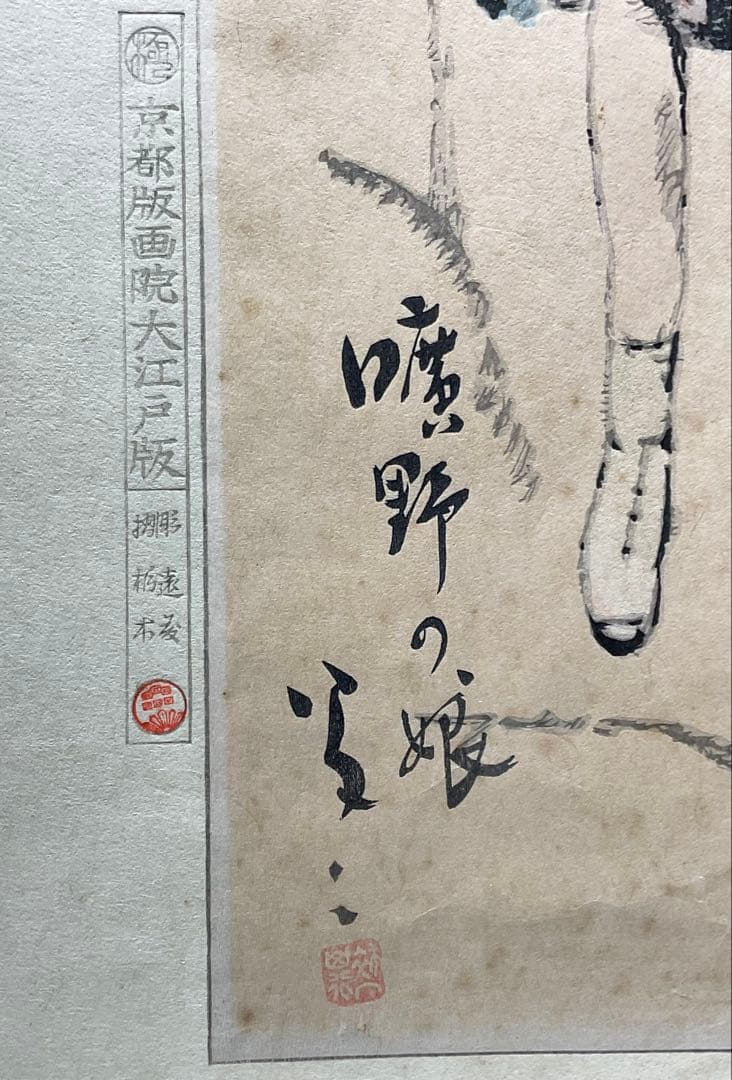 曠野の娘
夢二
極
京都版画院大江戸版
彫遠
摺栃木